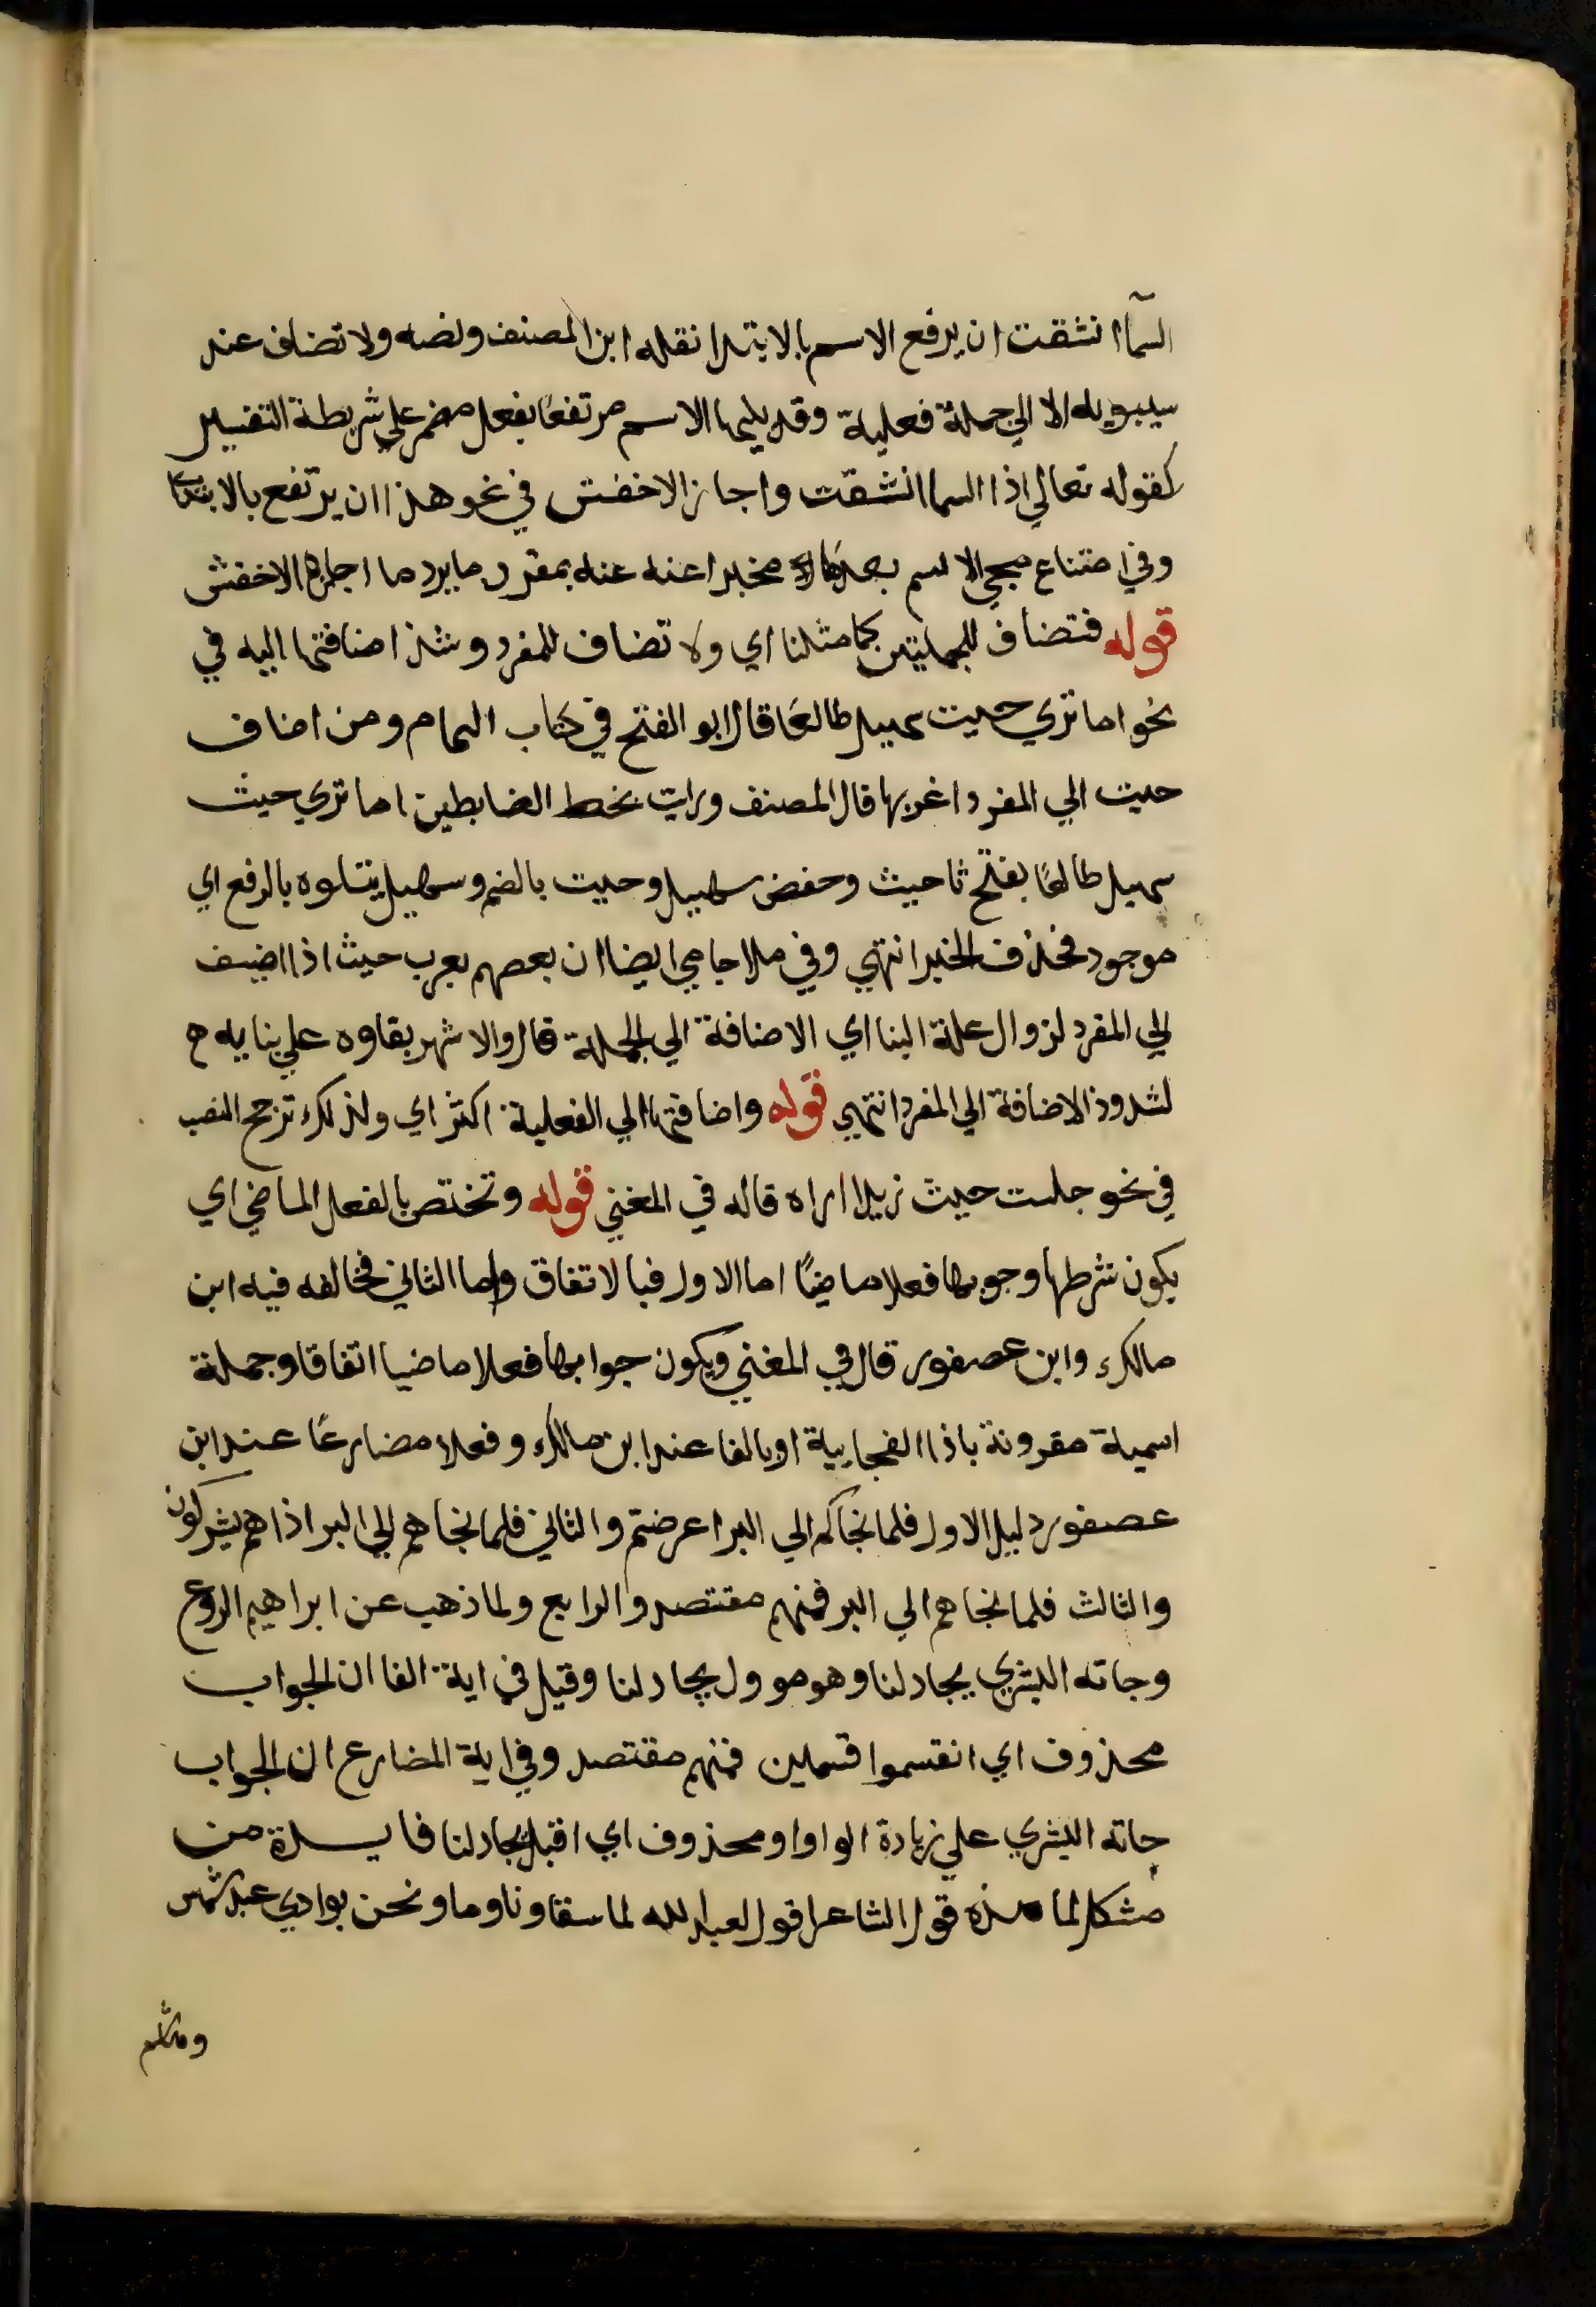 السمآ انشقت ان يرفع الاسم بالابتدا نقله ابن المصنف ونصه ولا تضاف عند
سيبويه الا الي جملة فعلية وقد يليها الاسم مرتفعا بفعل مضمر علي شريطة التفسير
كقوله تعالي اذا السما انشقت واجاز الاخفش في نحو هذا ان يرتفع بالابتدا
وفي امتناع مجي الاسم بعد مخبرا عنه عنه بمفرد ما يرد ما اجازه الاخفش
قوله فتضاف للجملتين كما مثلنا اي ولا تضاف للمفرد وشذ اضافتها اليه في
نحو اما تري حيث سهيل طالعا قال ابو الفتح في كتاب التمام ومن اضاف
حيث الي المفرد اعربها قال المصنف ورايت بخط الضابطين اما تري حيث
سهيل طالعا بفتح ثا حيث وخفض سهيل وحيث بالضم وسهيل يتلوه بالرفع اي
موجود فحذف الخبر انتهي وفي ملا جامي ايضا ان بعضهم يعرب حيث اذا اضيف
الي المفرد لزوال علة البنا اي الاضافة الي الجملة قال والاشهر بقاوه علي بنايه ح
لشدوذ الاضافة الي المفرد انتهي قوله واضافتها الي الفعلية اكثر اي ولذلك ترجح النصب
في نحو جلست حيث زيدا اراه قاله في المغني قوله وتختص بالفعل الماضي اي
يكون شرطها وجوبها فعلا ماضيًا اما الاول فبالاتفاق واما الثاني فخالفه فيه ابن
مالك وابن عصفور قال في المغني ويكون جوابها فعلا ماضيا اتفاقا وجملة
اسمية مقرونة باذا الفجايية او بالفا عند ابن مالك وفعلا مضارعًا عند ابن
عصفور دليل الاول فلما نجاكم الي البر اعرضتم والثاني فلما نجاهم الي البر اذا هم يشركون
والثالث فلما نجاهم الي البر فمنهم مقتصد والرابع ولما ذهب عن ابراهيم الروع
وجاته البشري يجادلنا وهو موول بجادلنا وقيل في اية الفا ان الجواب
محذوف اي انقسموا قسمين فمنهم مقتصد وفي اية المضارع ان الجواب
جاته البشري علي زيادة الواو او محذوف اي اقبل يجادلنا فايدة من
مشكل لما هذه قول الشاعر اقول لعبد الله لما سقاونا وما ونحن بوادي عبد شمس